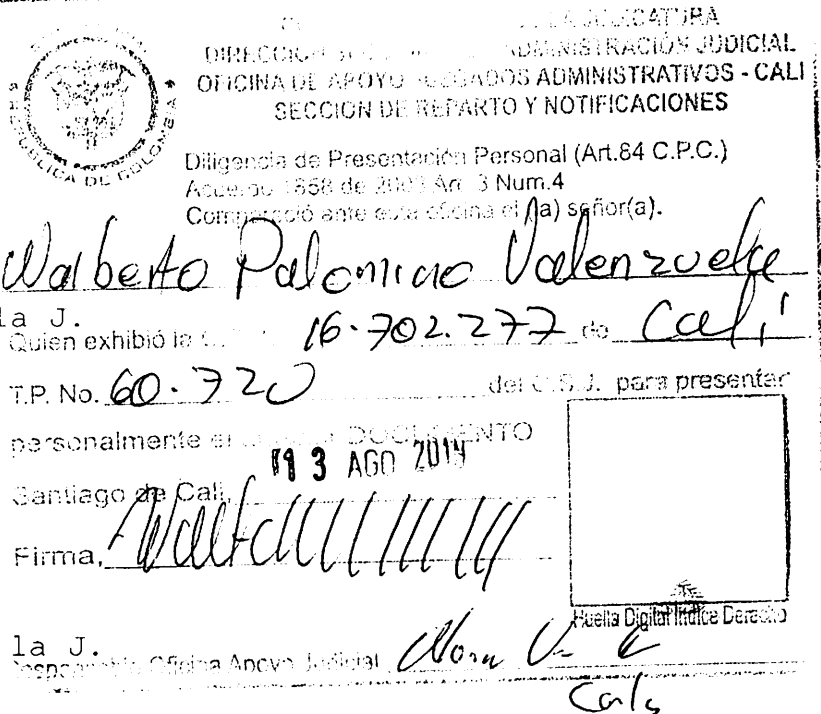 JUDICATURA
DIRECCIÓN ADMINISTRACIÓN JUDICIAL
OFICINA DE APOYO JUZGADOS ADMINISTRATIVOS - CALI
SECCION DE REPARTO Y NOTIFICACIONES
REPUBLICA DE COLOMBIA
Diligencia de Presentación Personal (Art.84 C.P.C.)
Acuerdo 1858 de 2003 Art. 3 Num.4
Compareció ante esta oficina el (la) señor(a).
Walberto Palomino Valenzuela
la J.
Quien exhibió la 16.702.277 de Cali
T.P. No. 60.720 del C.S.J. para presentar
personalmente el DOCUMENTO
13 AGO 2019
Santiago de Cali,
Firma,
Huella Digital Indice Derecho
la J.
Responsable Oficina Apoyo Judicial
Cali